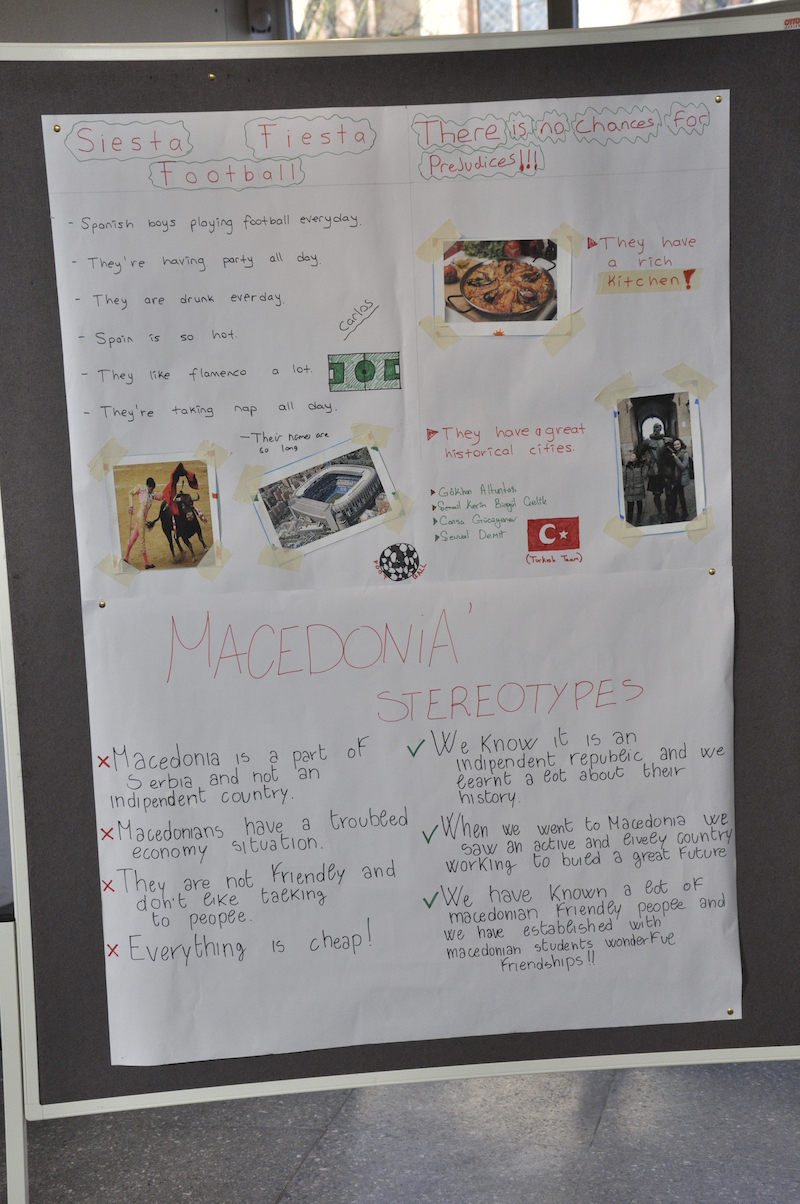 Siesta Fiesta
Football
- Spanish boys playing football everyday.
- They're having party all day.
- They are drunk everday.
- Spain is so hot.
Carlos
- They like flamenco a lot.
- They're taking nap all day.
- Their names are
so long
FOOTBALL
There is no chances for
Prejudices!!!
They have
a rich
kitchen!
They have a great
historical cities.
Gökhan Altuntaş
Cansu
Sewval Demir
(Turkish Team)
MACEDONIA'
STEREOTYPES
x Macedonia is a part of
Serbia and not an
indipendent country.
x Macedonians have a troubled
economy situation.
x They are not friendly and
don't like talking
to people.
x Everything is cheap!
✓ We know it is an
indipendent republic and we
learnt a lot about their
history.
✓ When we went to Macedonia we
saw an active and lively country
working to build a great future
✓ We have known a lot of
macedonian friendly people and
we have established with
macedonian students wonderful
friendships!!